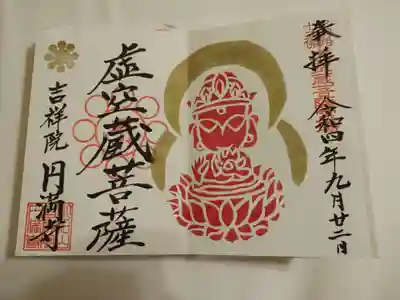 奉拝
令和四年九月廿二日
虚空蔵菩薩
吉祥院 円満寺